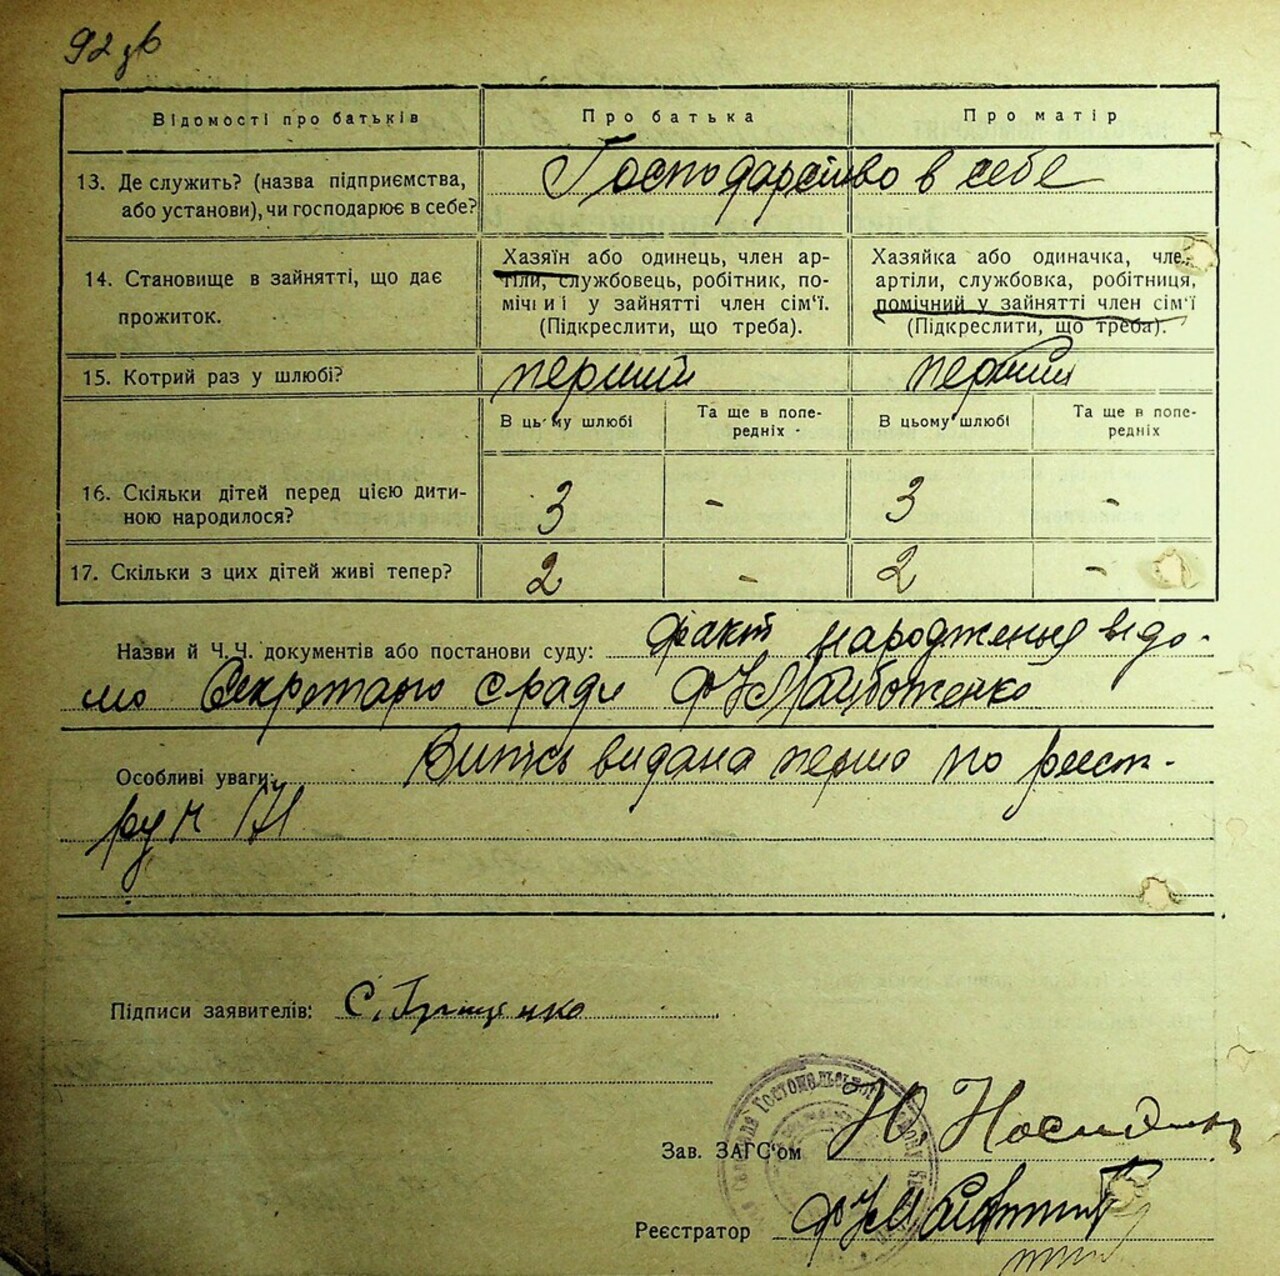 92 зв
Відомості про батьків
Про батька
Про матір
13. Де служить? (назва підприємства,
або установи), чи господарює в себе?
Господарство в себе
14. Становище в зайнятті, що дає
прожиток.
Хазяїн або одинець, член ар-
тіли, службовець, робітник, по-
мічний у зайнятті член сім'ї.
(Підкреслити, що треба).
Хазяйка або одиначка, член
артіли, службовка, робітниця,
помічний у зайнятті член сім'ї
(Підкреслити, що треба).
15. Котрий раз у шлюбі?
перший
перший
В цьому шлюбі
Та ще в попе-
редніх -
В цьому шлюбі
Та ще в попе-
редніх
16. Скільки дітей перед цією дити-
ною народилося?
3 - 3 -
17. Скільки з цих дітей живі тепер?
2 - 2 -
Назви й Ч.Ч. документів або постанови суду: факт народження відо-
мо Секретарю с ради
Особливі уваги: Витяг видана перша по реєст-
ру №
Підписи заявителів: С. Грищенко
Зав. ЗАГС'ом Ю.
Реєстратор